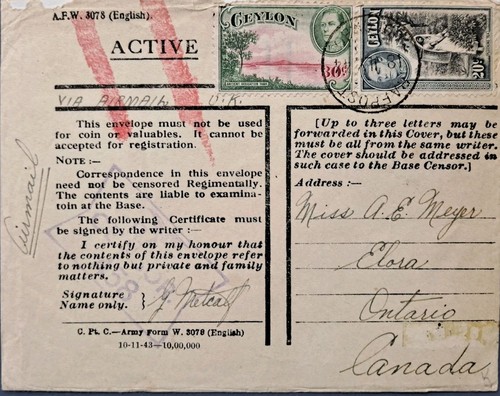 A.F.W. 3078 (English).
ACTIVE
CEYLON
CEYLON
VIA AIRMAIL U.K.
Airmail
This envelope must not be used
for coin or valuables. It cannot be
accepted for registration.
NOTE :—
Correspondence in this envelope
need not be censored Regimentally.
The contents are liable to examina-
toin at the Base.
The following Certificate must
be signed by the writer :—
I certify on my honour that
the contents of this envelope refer
to nothing but private and family
matters.
Signature
Name only. } Y. Metcalf
C. Pt. C.—Army Form W. 3078 (English)
10-11-43—10,00,000
[Up to three letters may be
forwarded in this Cover, but these
must be all from the same writer.
The cover should be addressed in
such case to the Base Censor.]
Address :—
Miss A. E. Meyer
Elora
Ontario
Canada